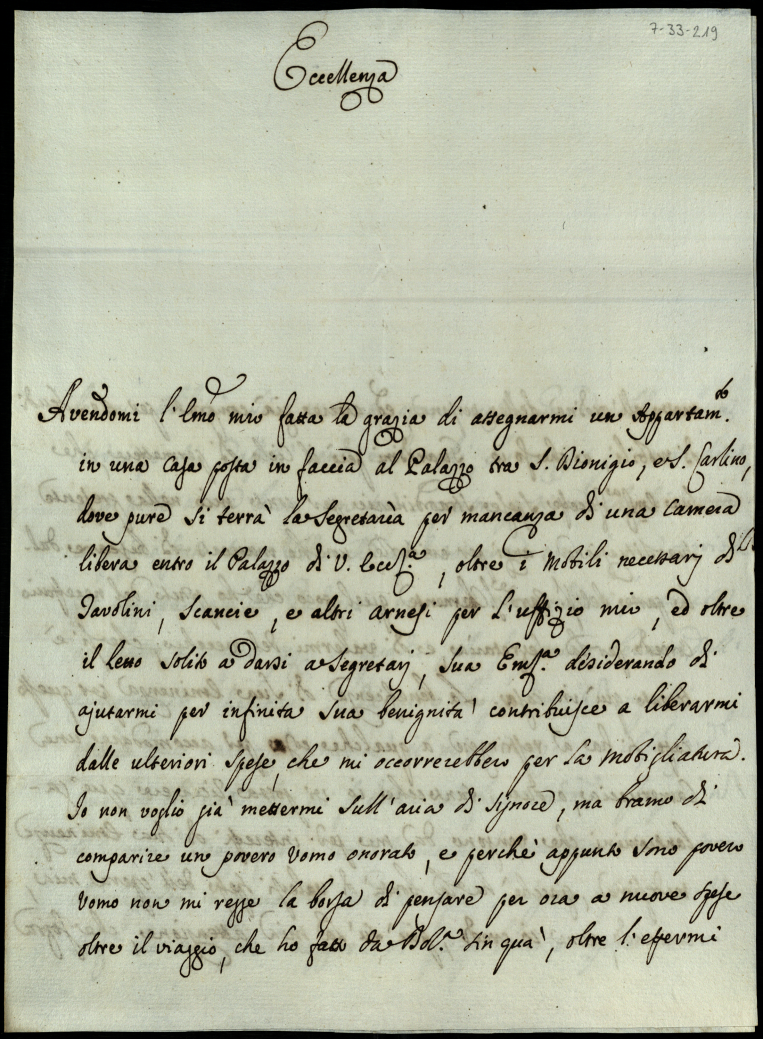 7-33-219
Eccellenza
Avendomi l'Emo mio fatta la grazia di assegnarmi un Appartam.to
in una Casa posta in faccia al Palazzo tra S. Dionigio, e S. Carlino,
dove pure si terrà la Segretaria per mancanza di una Camera
libera entro il Palazzo di V. Eccſ.a, oltre i Mobili necessarj di
Tavolini, Scancie, e altri arnesi per l'uffizio mio, ed oltre
il letto solito a darsi a Segretarj, Sua Emſ.a desiderando di
ajutarmi per infinita sua benignità contribuisce a liberarmi
dalle ulteriori spese, che mi occorrerebbero per la Mobigliatura.
Io non voglio già mettermi sull'aria di Signore, ma bramo di
comparire un povero Uomo onorato, e perchè appunto sono povero
Uomo non mi regge la borsa di pensare per ora a nuove spese
oltre il viaggio, che ho fatto da Bol.a sin quà, oltre l'essermi